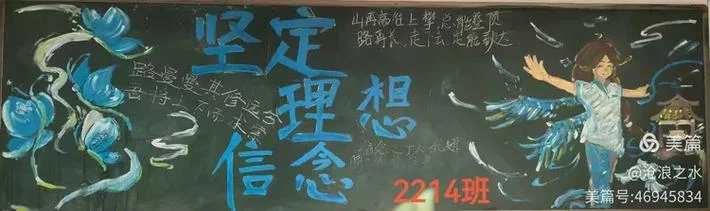 坚定
理想
信念
山再高往上攀总能登顶
路再长走下去定能到达
路曼曼其修远兮
吾将上下而求索
2214班
美篇
@沧浪之水
美篇号:46945834